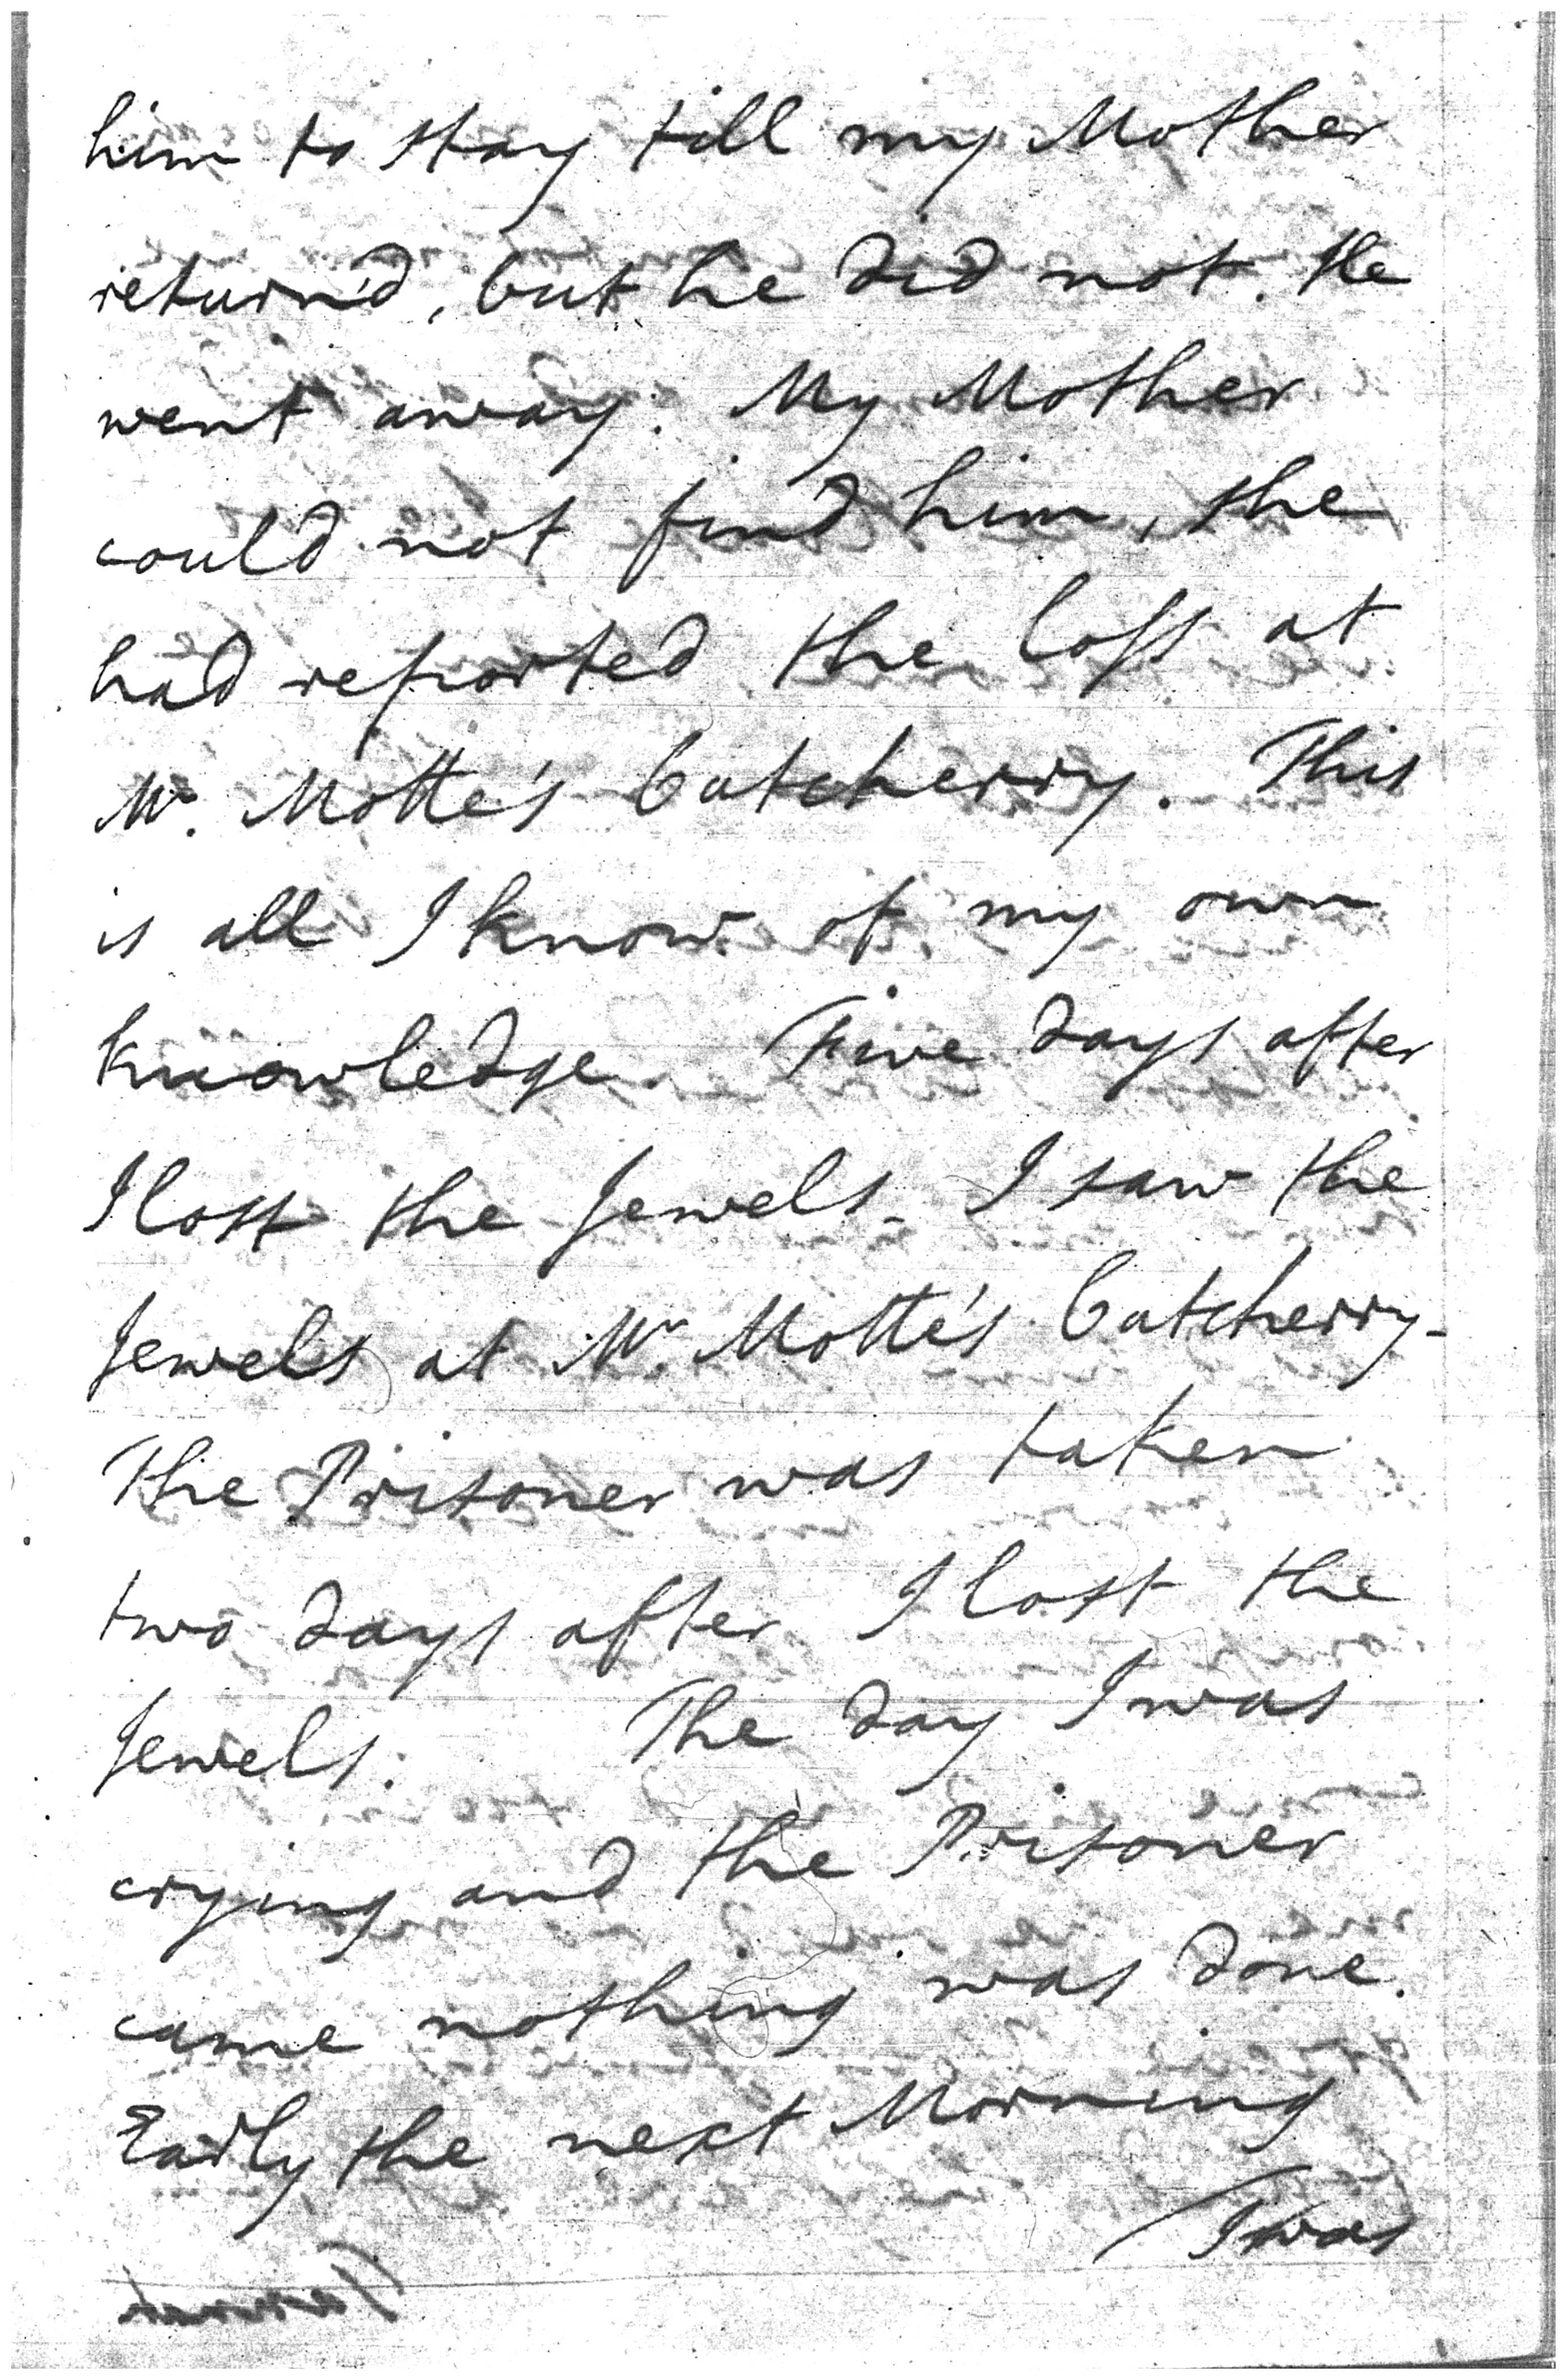 him to stay till my Mother
return'd, but he did not. He
went away. My Mother
could not find him, she
had reported the loss at
Mr. Motte's Cutcherry. This
is all I know of my own
knowledge. Five days after
I lost the Jewels. I saw the
Jewels at Mr. Motte's Cutcherry-
The Prisoner was taken
two days after I lost the
Jewels. The day I was
crying and the Prisoner
came nothing was done.
Early the next Morning
I was